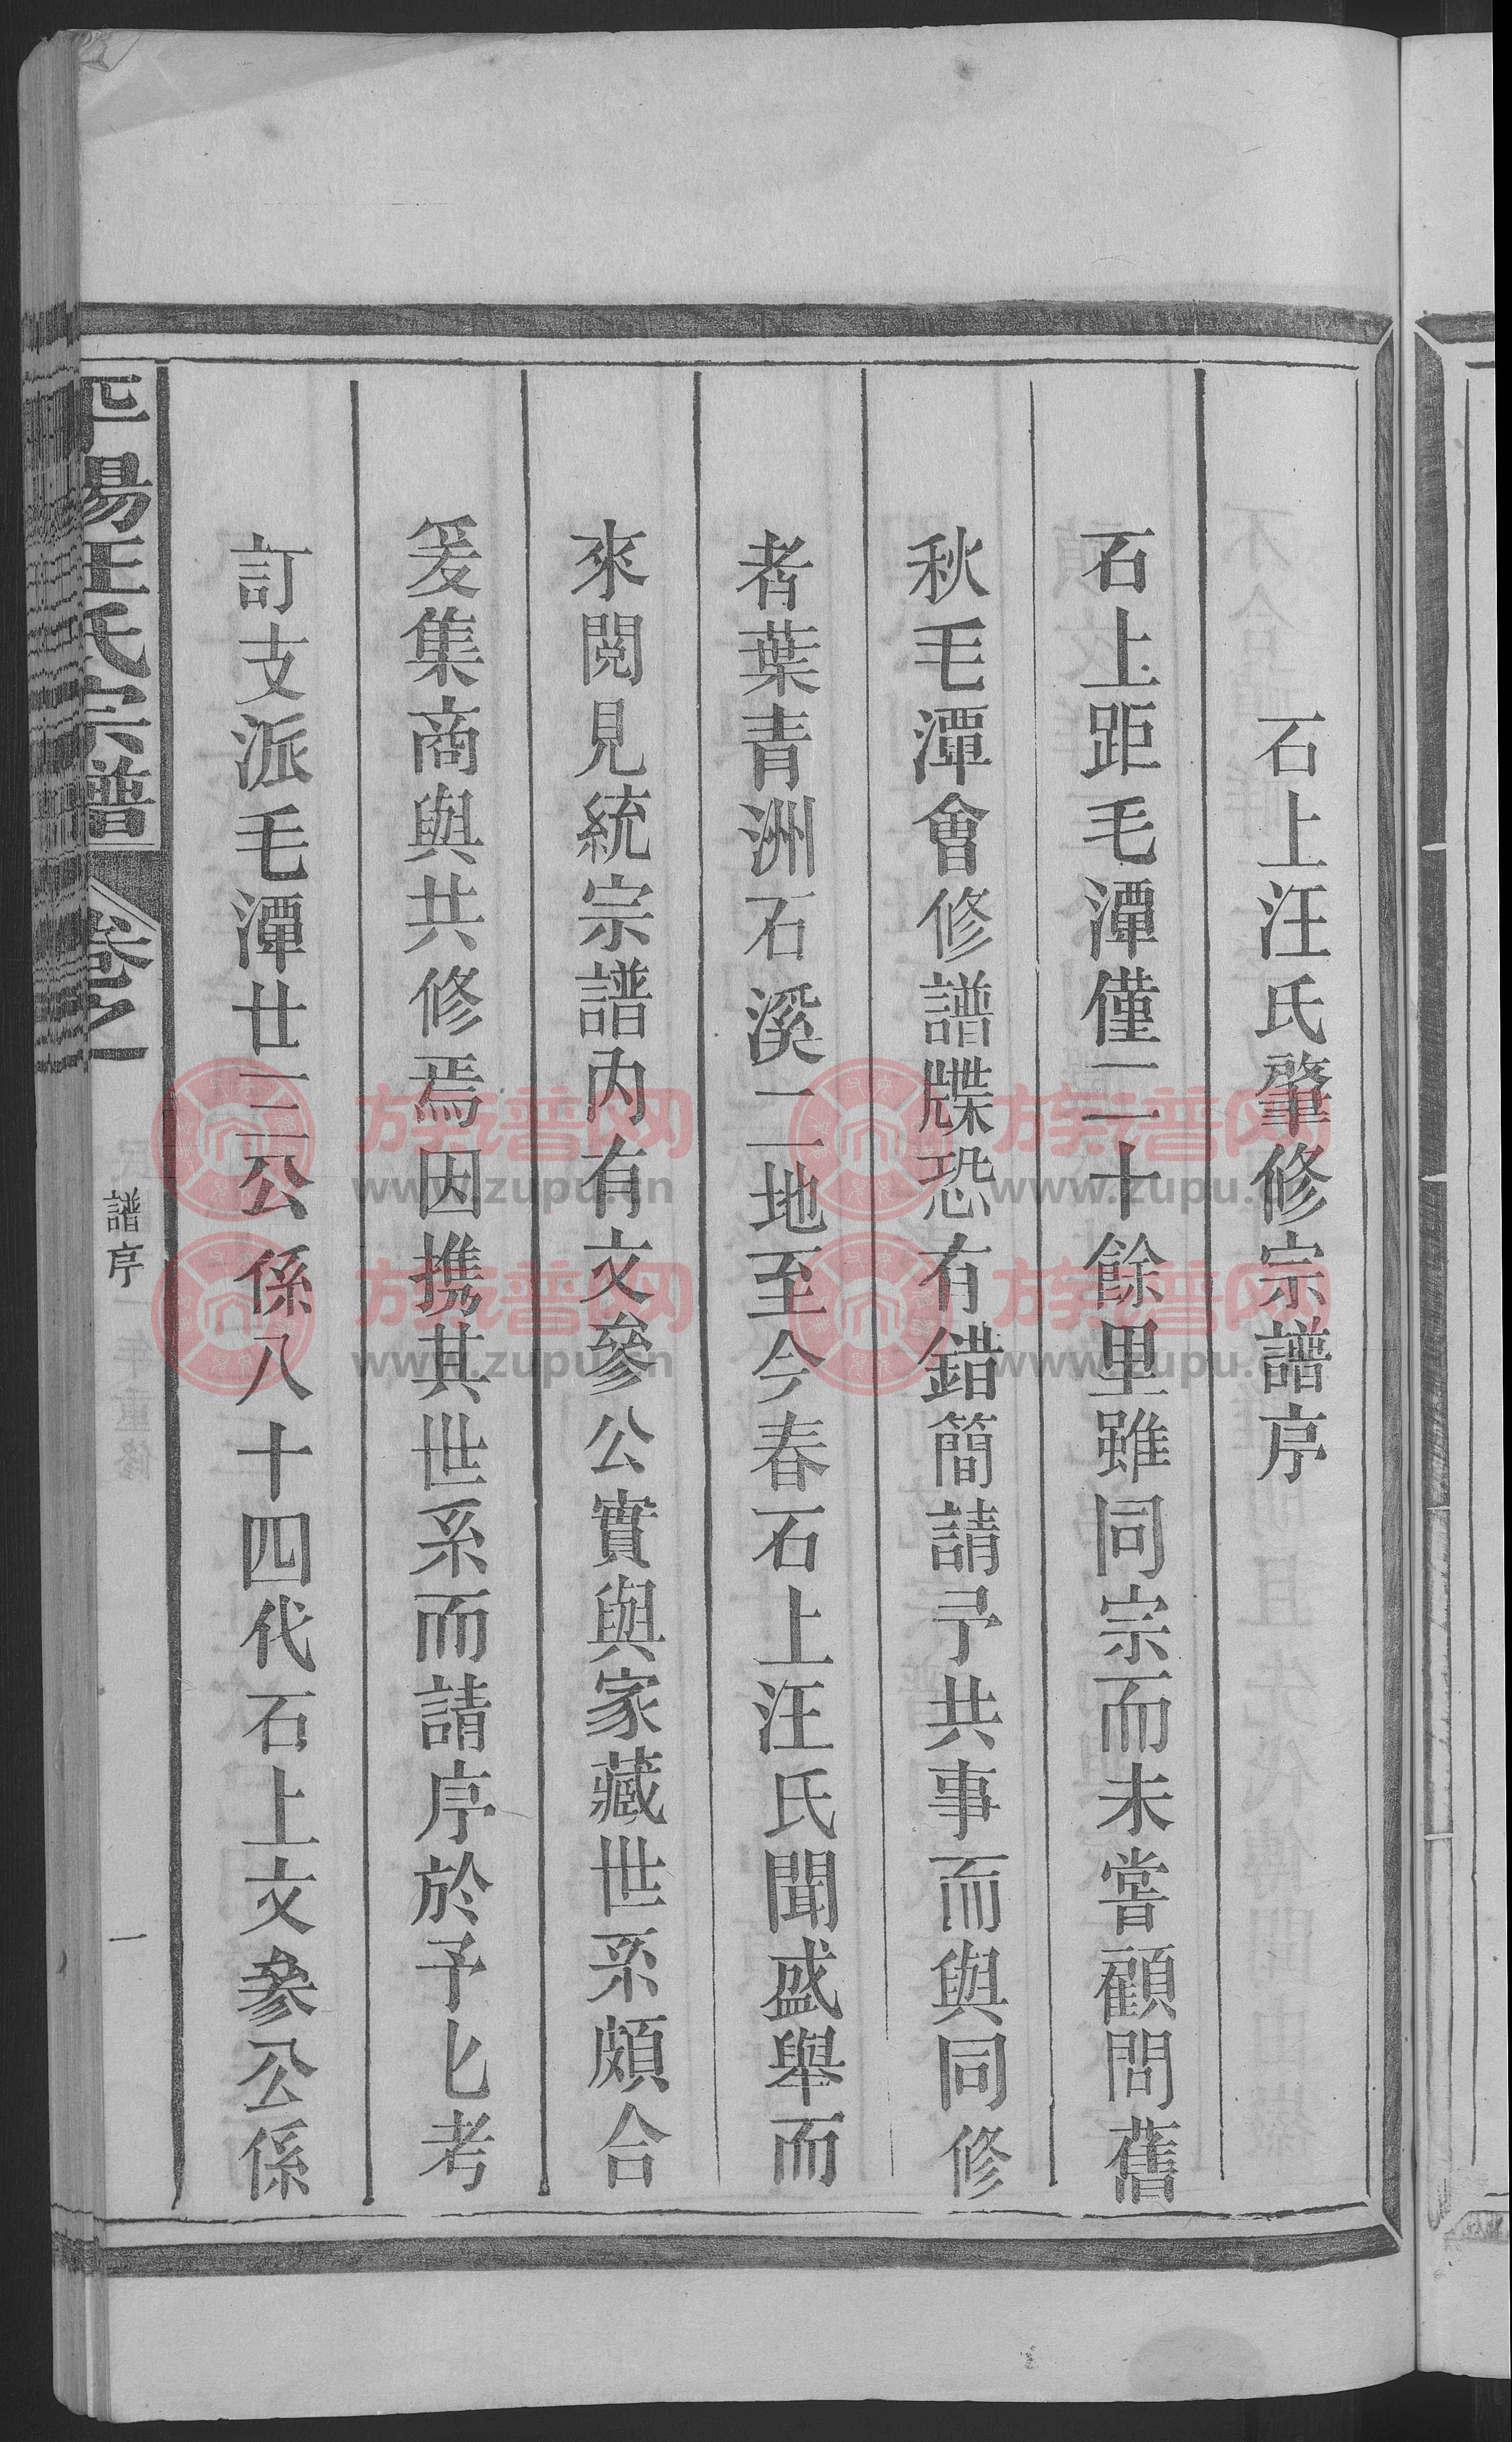 石上汪氏肇修宗譜序
石上距毛潭僅二十餘里雖同宗而未嘗顧問舊
秋毛潭會修譜牒恐有錯簡請予共事而與同修
者葉青洲石溪二地至今春石上汪氏聞盛舉而
來閱見統宗譜內有文參公實與家藏世系頗合
爰集商與共修焉因携其世系而請序於予匕考
訂支派毛潭廿三公係八十四代石上文參公係
平陽汪氏宗譜
卷之一
譜序
一
族谱网
www.zupu.cn
族谱网
www.zupu.cn
族谱网
www.zupu.c
族谱网
www.zupu.c